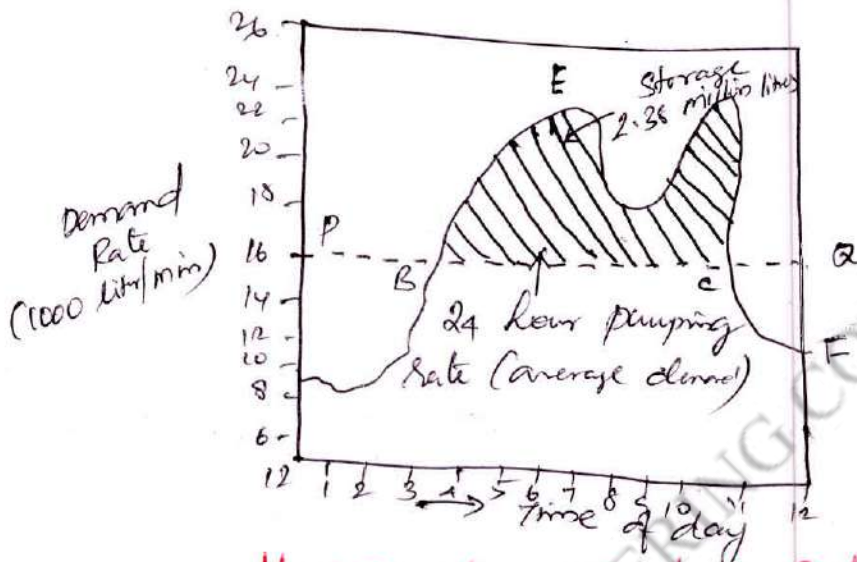 26
24
22
20
18
16
14
12
10
8
6
Demand
Rate
(1000 liter/min)
P
E
Storage
2.38 million litres
B
C
Q
24 hour pumping
rate (average demand)
F
12 1 2 3 4 5 6 7 8 9 10 11 12
Time of day
ERING CO